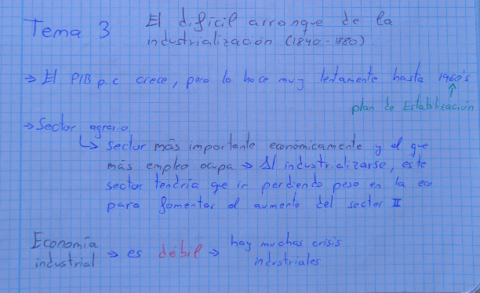 Tema 3 El difícil arranque de la
industrialización (1840-1880)
→ El PIB p.c crece, pero lo hace muy lentamente hasta 1960's
plan de Estabilización
→ Sector agrario
↳ sector más importante económicamente y el que
más empleo ocupa → Al industrializarse, este
sector tendría que ir perdiendo peso en la eco
para fomentar el aumento del sector II
Economía industrial → es débil → hay muchas crisis
industriales